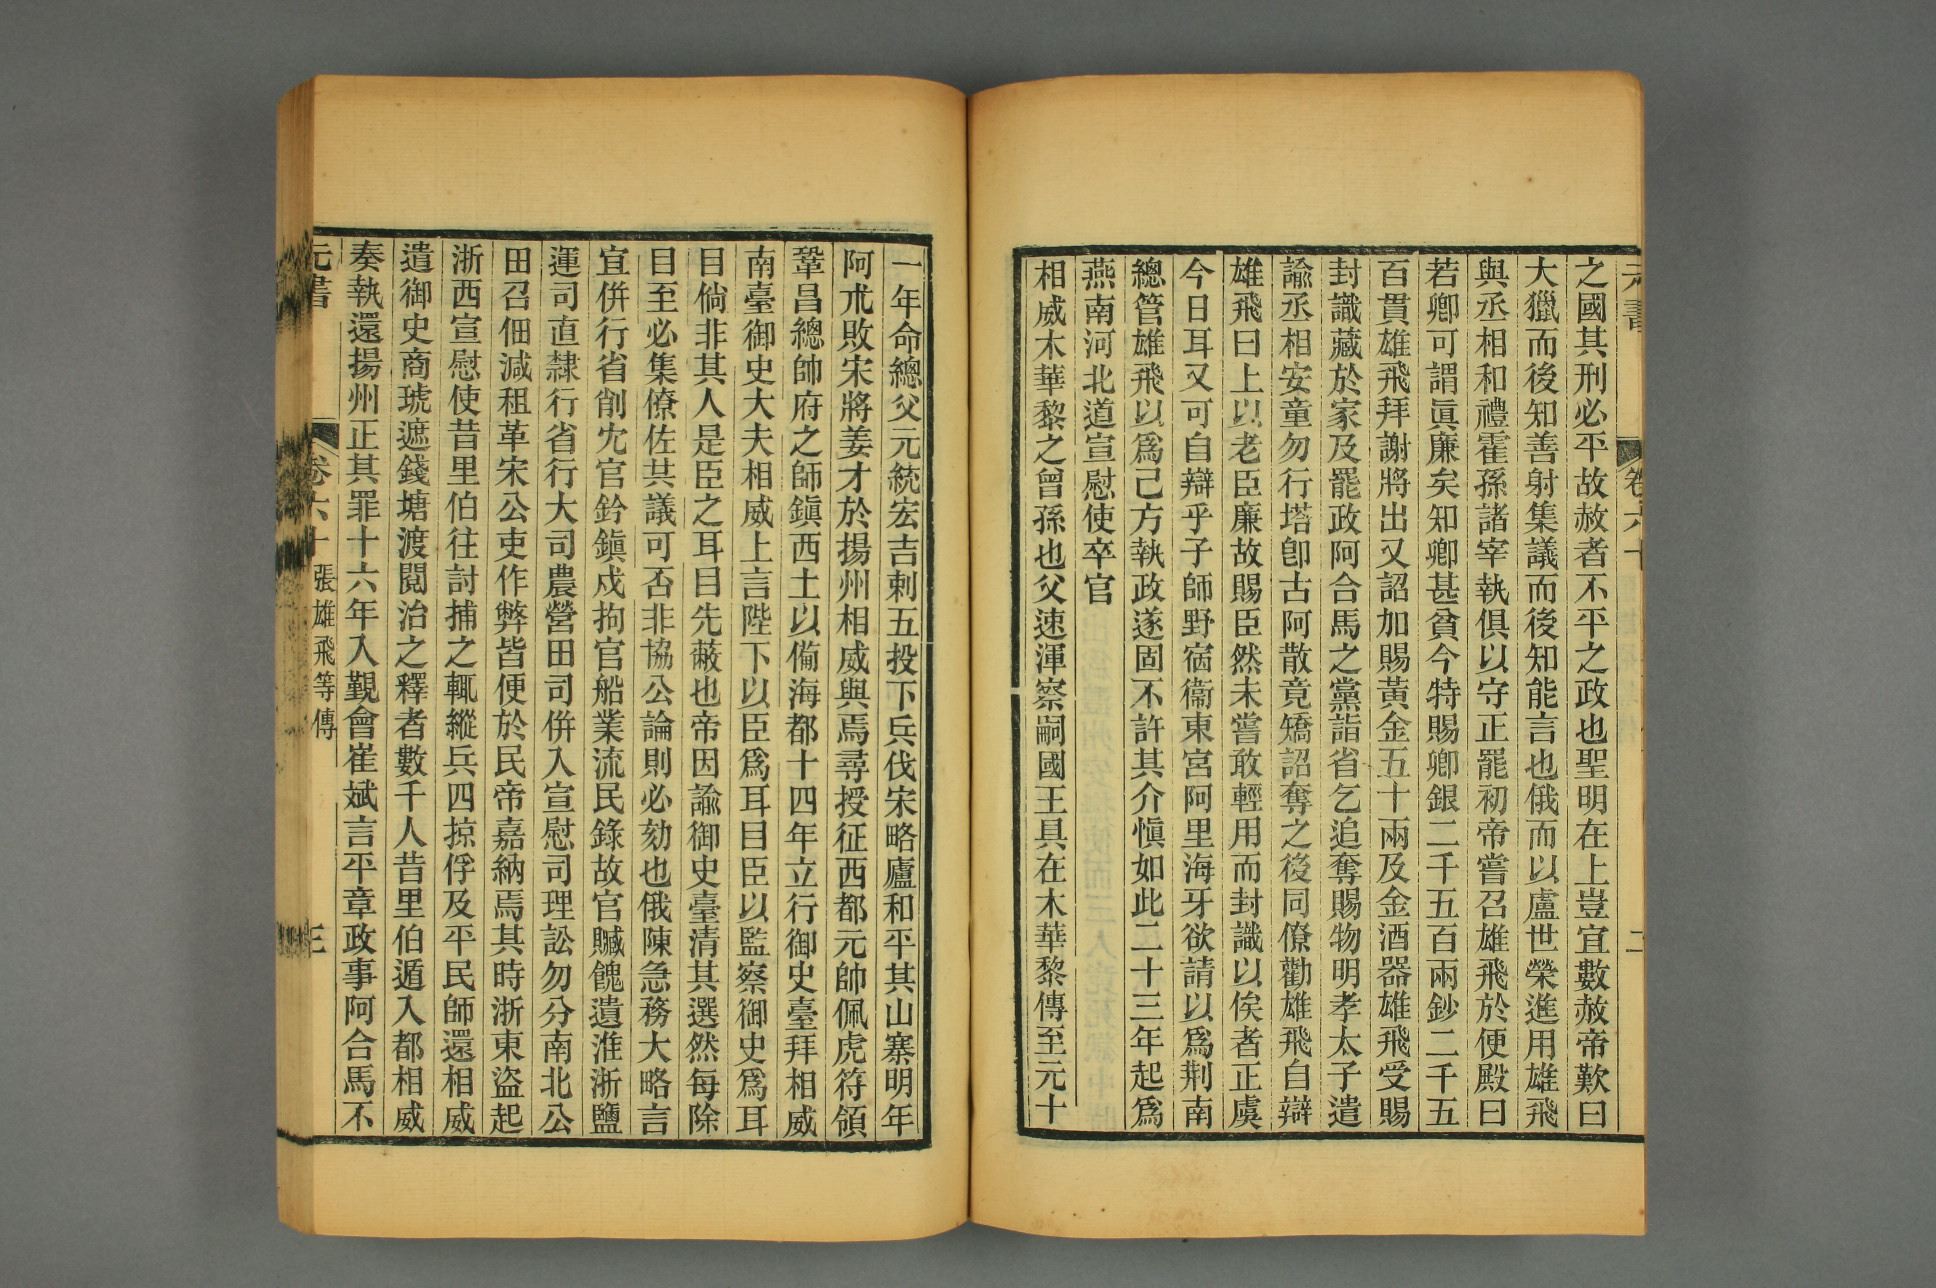 元書 卷六十 二
之國其刑必平故赦者不平之政也聖明在上豈宜數赦帝歎曰
大獵而後知善射集議而後知能言也俄而以盧世榮進用雄飛
與丞相和禮霍孫諸宰執俱以守正罷初帝嘗召雄飛於便殿曰
若卿可謂眞廉矣知卿甚貧今特賜卿銀二千五百兩鈔二千五
百貫雄飛拜謝將出又詔加賜黃金五十兩及金酒器雄飛受賜
封識藏於家及罷政阿合馬之黨詣省乞追奪賜物明孝太子遣
諭丞相安童勿行塔卽古阿散竟矯詔奪之後同僚勸雄飛自辯
雄飛曰上以老臣廉故賜臣然未嘗敢輕用而封識以俟者正虞
今日耳又可自辯乎子師野宿衞東宮阿里海牙欲請以爲荆南
總管雄飛以爲己方執政遂固不許其介愼如此二十三年起爲
燕南河北道宣慰使卒官
相威木華黎之曾孫也父速渾察嗣國王具在木華黎傳至元十
一年命總父元統宏吉剌五投下兵伐宋略廬和平其山寨明年
阿朮敗宋將姜才於揚州相威與焉尋授征西都元帥佩虎符領
鞏昌總帥府之師鎭西土以備海都十四年立行御史臺拜相威
南臺御史大夫相威上言陛下以臣爲耳目臣以監察御史爲耳
目倘非其人是臣之耳目先蔽也帝因諭御史臺清其選然每除
目至必集僚佐共議可否非協公論則必劾也俄陳急務大略言
宜併行省削冗官鈐鎭戍拘官船業流民錄故官贓餽遺淮浙鹽
運司直隸行省行大司農營田司併入宣慰司理訟勿分南北公
田召佃減租革宋公吏作弊皆便於民帝嘉納焉其時浙東盜起
浙西宣慰使昔里伯往討捕之輒縱兵四掠俘及平民師還相威
遣御史商琥遮錢塘渡閱治之釋者數千人昔里伯遁入都相威
奏執還揚州正其罪十六年入覲會崔斌言平章政事阿合馬不
元書 卷六十 張雄飛等傳 三